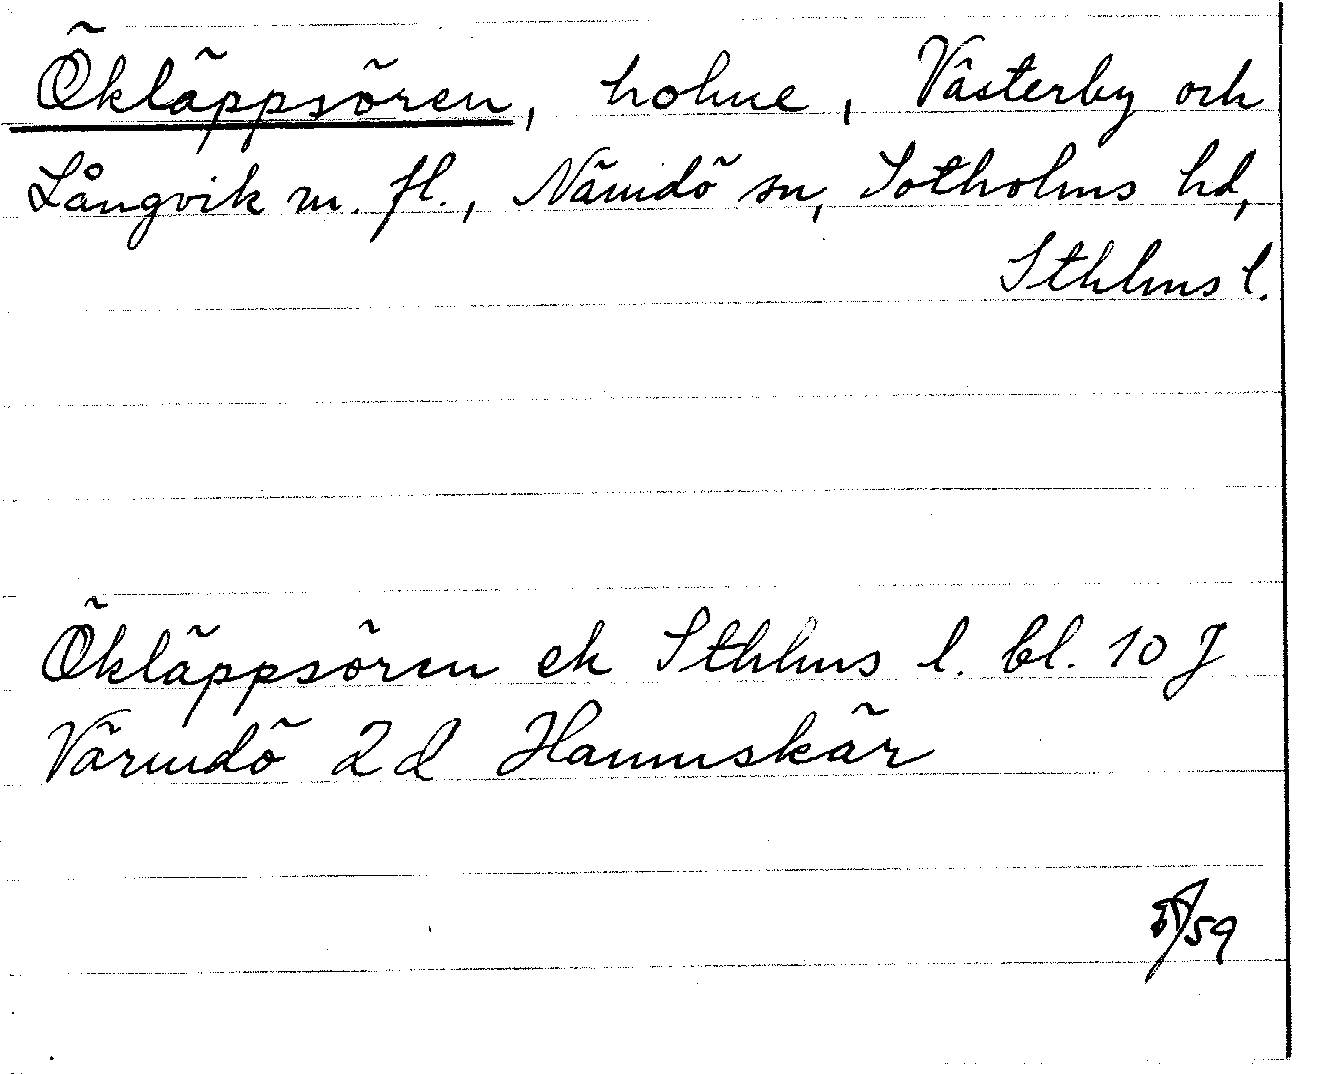 Ökläppsören, holme, Västerby och
Långvik m. fl., Nämdö sn, Sotholms hd,
Sthlms l.
Ökläppsören ek Sthlms l. bl. 10 J
Värmdö 2d Hamnskär
/59